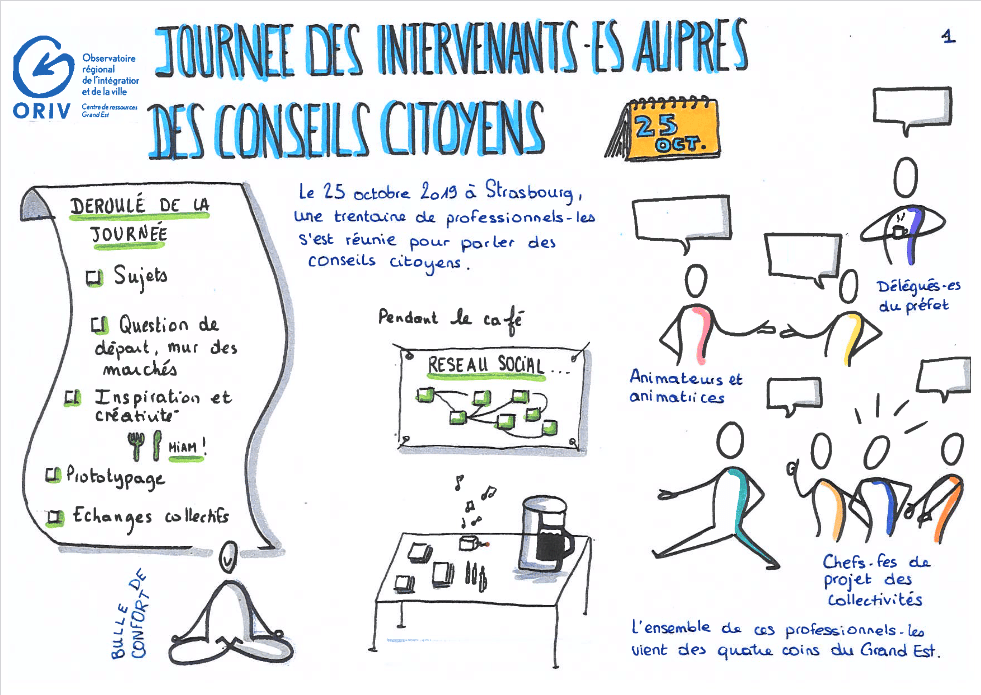 JOURNEE DES INTERVENANTS-ES AUPRES
DES CONSEILS CITOYENS
1
ORIV
Observatoire
régional
de l'intégration
et de la ville
Centre de ressources
Grand Est
25
OCT.
DEROULÉ DE LA
JOURNÉE
Sujets
Question de
départ, mur des
marchés
Inspiration et
créativité
MIAM !
Prototypage
Echanges collectifs
BULLE DE
CONFORT
Le 25 octobre 2019 à Strasbourg,
une trentaine de professionnels-les
s'est réunie pour parler des
conseils citoyens.
Pendant le café
RESEAU SOCIAL ...
Délégués-es
du préfet
Animateurs et
animatrices
Chefs-fes de
projet des
collectivités
L'ensemble de ces professionnels-les
vient des quatre coins du Grand Est.